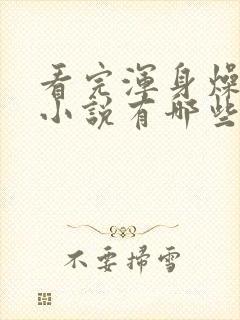 看完渾身燥
小說有哪些
不要掃雪